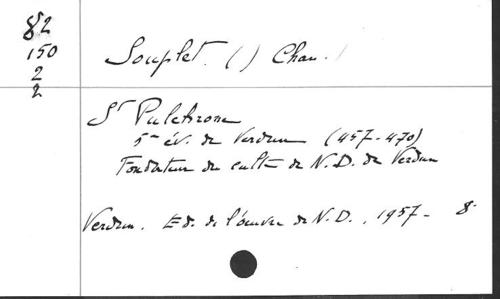 82
150
2
2
Souplet. ( ) Chan.
St Pulchrone
5me év. de Verdun (457-470)
Fondateur du culte de N.D. de Verdun
Verdun. Ed. de l'œuvre de N.D., 1957- 8°